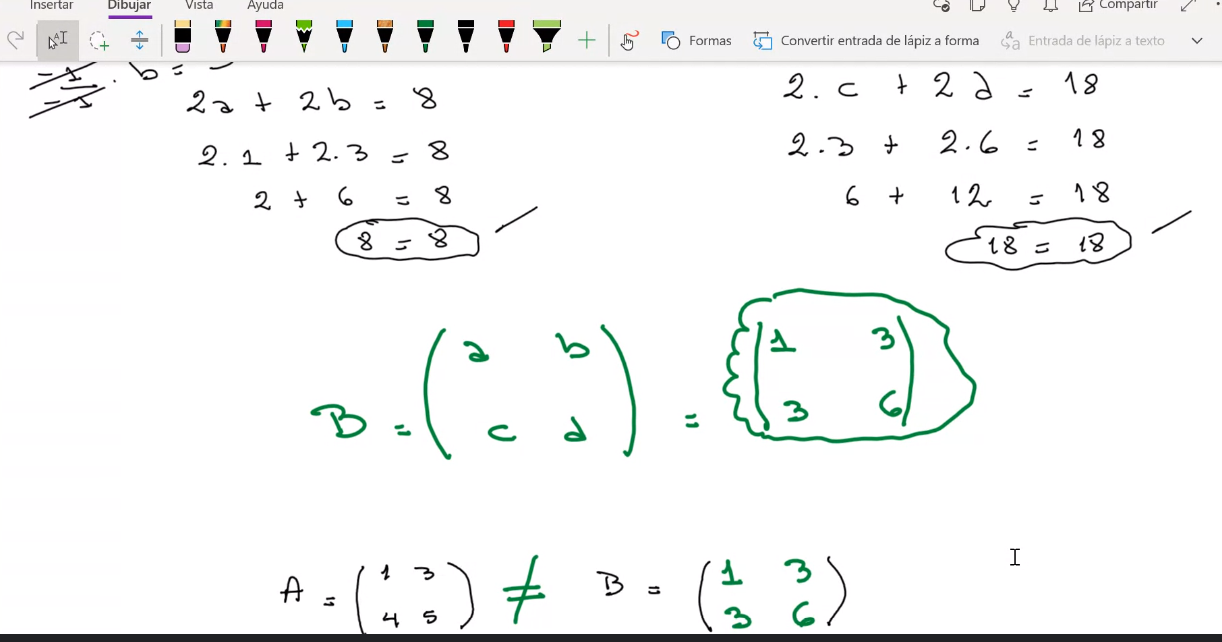 Insertar Dibujar Vista Ayuda Compartir
Formas Convertir entrada de lápiz a forma Entrada de lápiz a texto
-1/-1 . b =
2a + 2b = 8
2.1 + 2.3 = 8
2 + 6 = 8
8 = 8
2.c + 2d = 18
2.3 + 2.6 = 18
6 + 12 = 18
18 = 18
B = ( a b
c d ) = ( 1 3
3 6 )
A = ( 1 3
4 5 ) ≠ B = ( 1 3
3 6 )